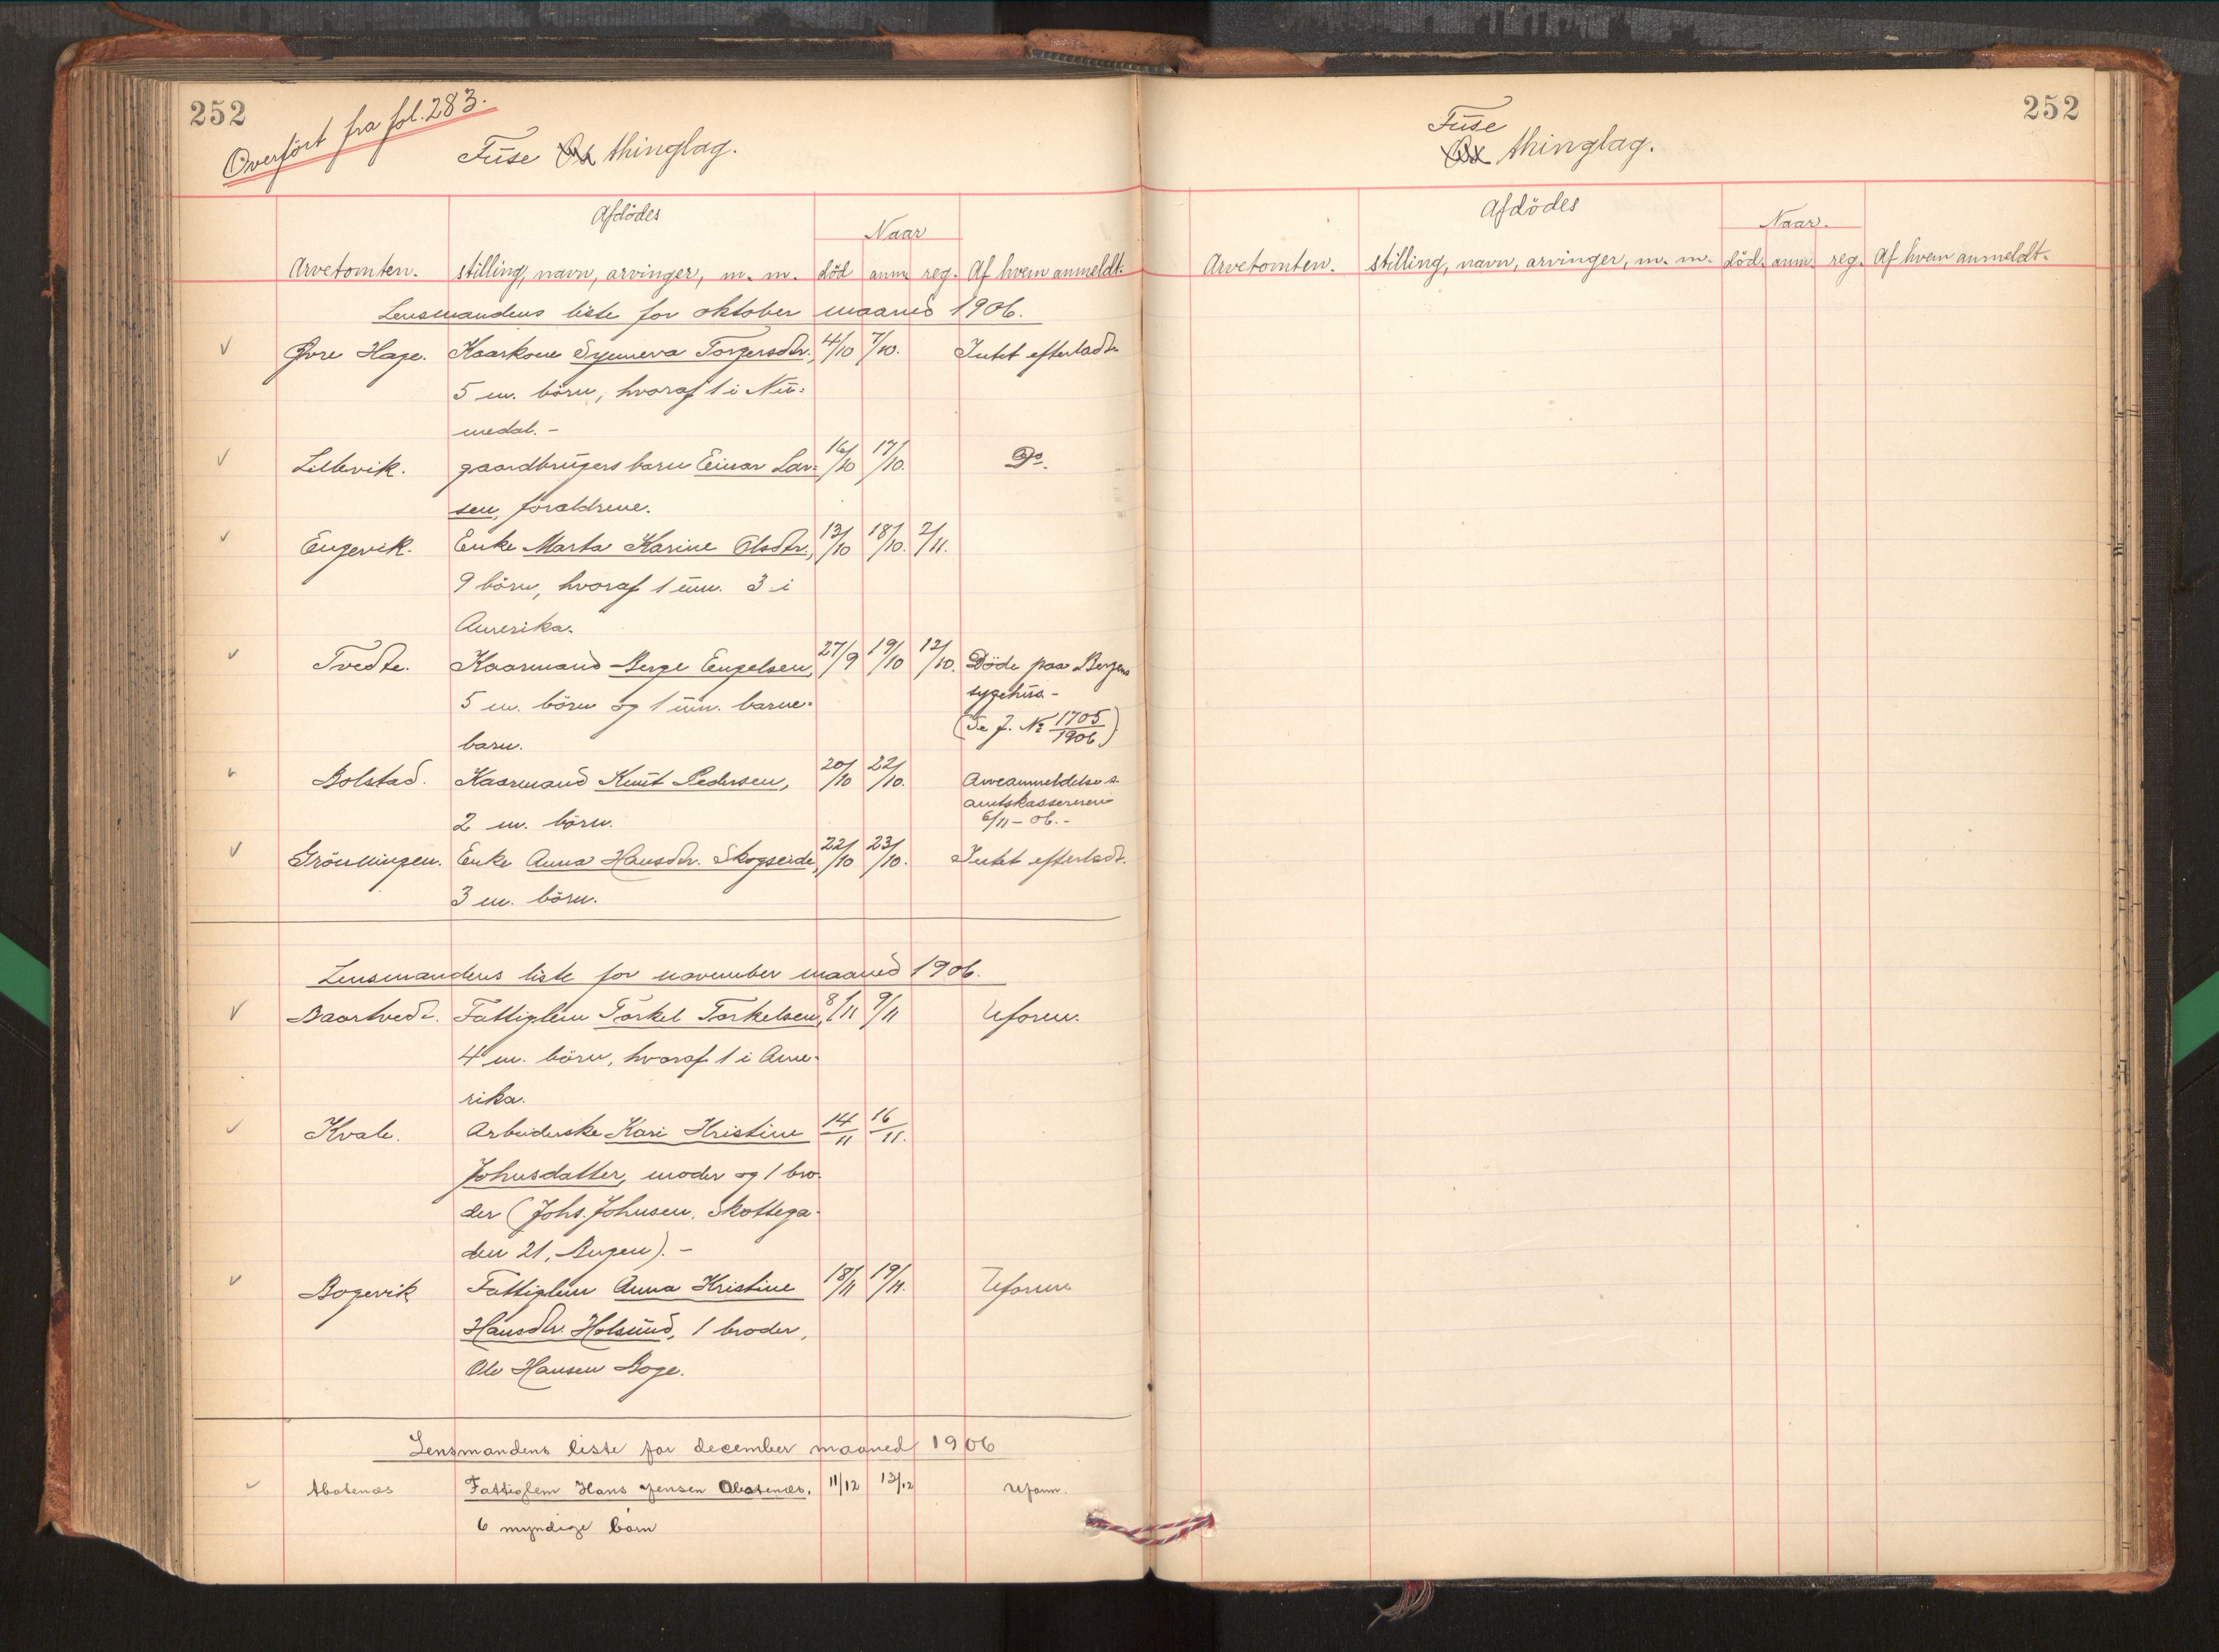 252
Overfört fra fol. 283.
Fuse Os thinglag.
Afdödes
Naar
Arvetomten. stilling, navn, arvinger, m. m. död anm. reg. Af hvem anmeldt.
Lensmandens liste for oktober maaned 1906.
Øvre Hage. Kaarkone Synneva Torgersdtr., 4/10 7/10. Intet efterladt.
5 m. börn, hvoraf 1 i Nu-
medal. -
Lillevik. gaardbrugers barn Einar Lar- 16/10 17/10. Do.
sen, forældrene.
Engevik. Enke Marta Karine Olsdtr., 13/10 18/10. 2/11.
9 börn, hvoraf 1 um. 3 i
Amerika.
Tvedte. Kaarmand Berge Engelsen, 27/9 19/10 12/10. Döde paa Bergens
sygehus. -
5 m. börn og 1 um. barne-
(Se J. No 1705/1906)
barn.
Bolstad. Kaarmand Knut Pedersen, 20/10 22/10. Arveanmeldelse s.
amtskassereren
2 m. börn. 6/11 - 06. -
Grönningen. Enke Anna Hansdtr. Skogseide, 22/10 23/10. Intet efterladt.
3 m. börn.
Lensmandens liste for november maaned 1906.
Baartvedt. Fattiglem Torkel Torkelsen, 8/11 9/11 Uform.
4 m. börn, hvoraf 1 i Ame-
rika.
Kvale. Arbeiderske Kari Kristine 14/11 16/11.
Johnsdatter, moder og 1 bro-
der (Johs. Johnsen, Skottega-
den 21, Bergen). -
Bogevik Fattiglem Anna Kristine 18/11 19/11. Uform
Hansdtr. Holsund, 1 broder,
Ole Hansen Boge.
Lensmandens liste for december maaned 1906
Abotenes Fattiglem Hans Jensen Abotenes, 11/12 13/12 Uform.
6 myndige börn
252
Fuse
Os thinglag.
Afdödes
Naar.
Arvetomten. stilling, navn, arvinger, m. m. död. anm. reg. Af hvem anmeldt.